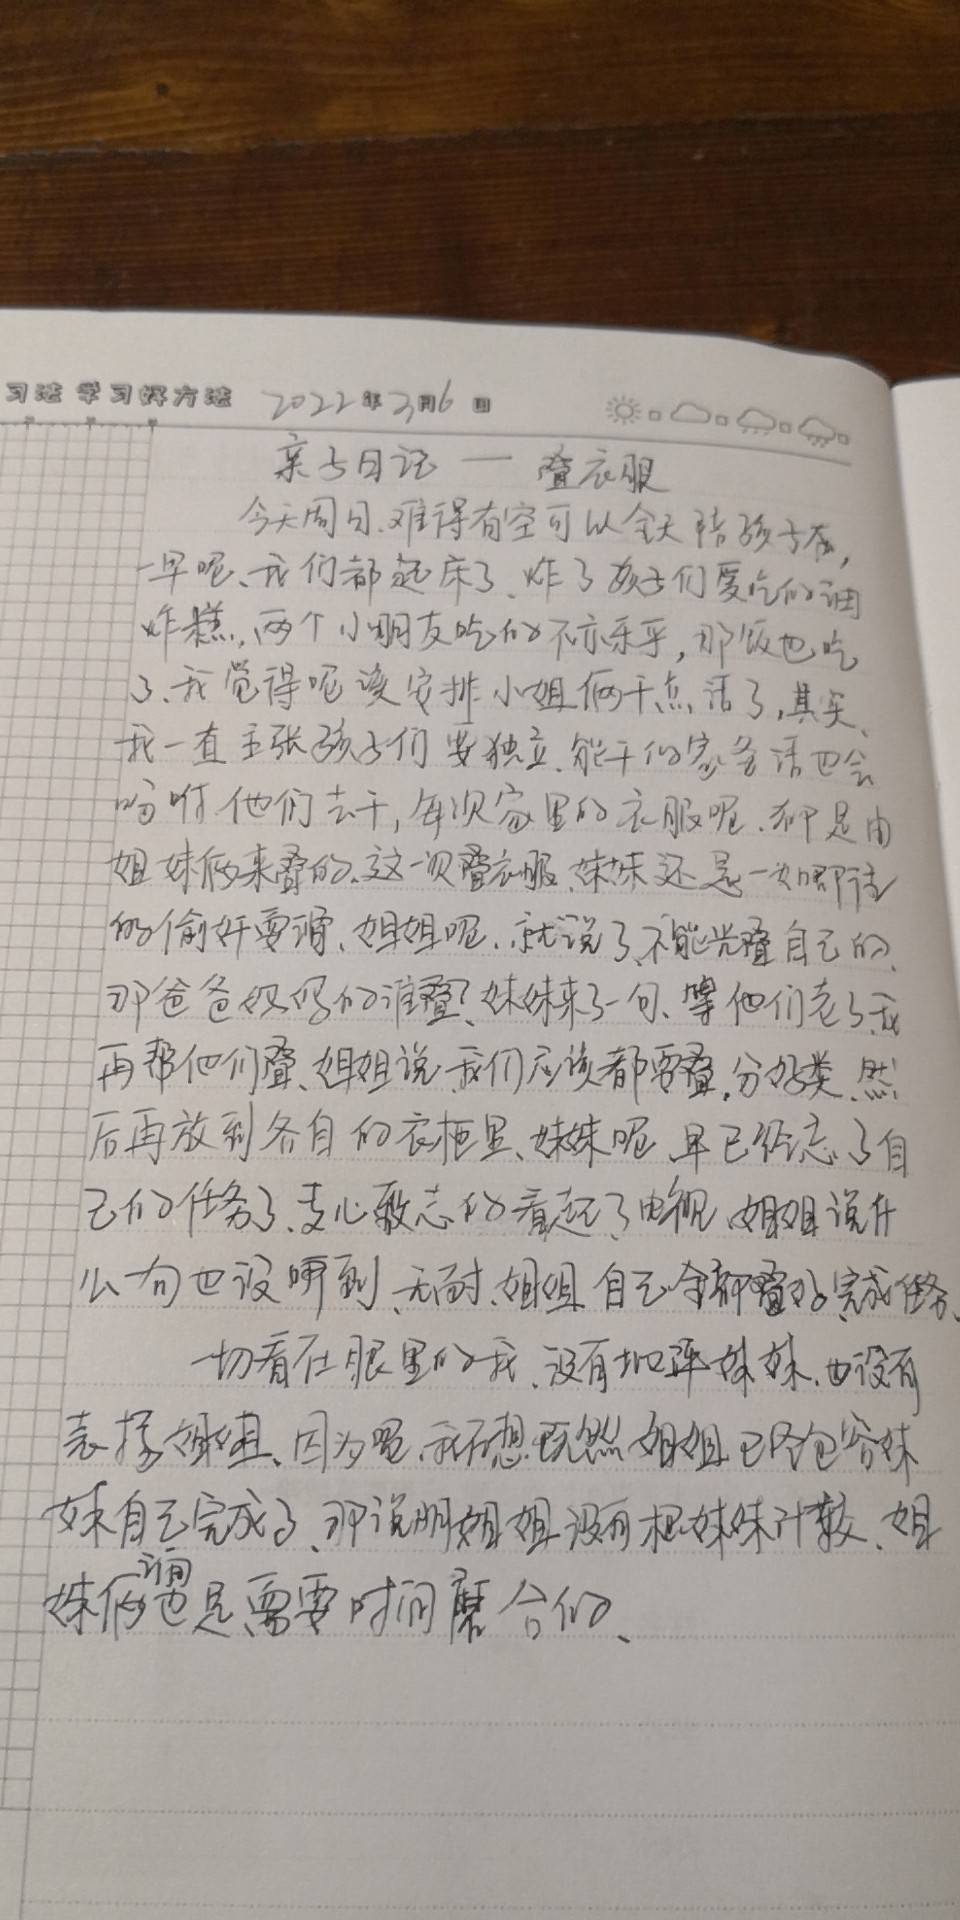 习法 学习好方法 2022年3月6日
亲子日记 — 叠衣服
今天周日、难得有空可以全天陪孩子在,
一早呢、我们都起床了、炸了孩子们爱吃的油
炸糕,两个小朋友吃的不亦乐乎,那饭也吃
了、我觉得呢该安排小姐俩干点活了,其实、
我一直主张孩子们要独立、能干的家务活也会
吩咐他们去干,每次家里的衣服呢、都是由
姐妹俩来叠的、这一次叠衣服、妹妹还是一如即往
的偷奸耍滑、姐姐呢、就说了、不能光叠自己的、
那爸爸妈妈的谁叠?妹妹来了一句、等他们老了、我
再帮他们叠、姐姐说、我们应该都要叠,分好类、然
后再放到各自的衣柜里、妹妹呢、早已经忘了自
己的任务了、专心致志的看起了电视、姐姐说什
么句也没听到、无耐、姐姐自己全部叠好、完成任务、
一切看在眼里的我、没有批评妹妹、也没有
表扬姐姐、因为呢、我在想、既然姐姐已经包容妹
妹自己完成了、那说明姐姐没有把妹妹计较、姐
妹俩之间也是需要时间磨合的、